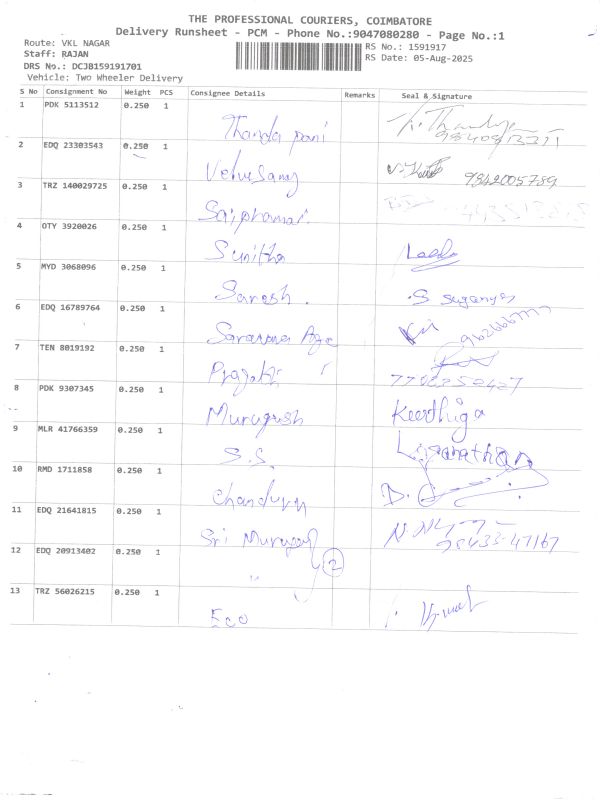 THE PROFESSIONAL COURIERS, COIMBATORE
Delivery Runsheet - PCM - Phone No.:9047080280 - Page No.:1
Route: VKL NAGAR
Staff: RAJAN
DRS No.: DCJB159191701
Vehicle: Two Wheeler Delivery
RS No.: 1591917
RS Date: 05-Aug-2025
S No Consignment No Weight PCS Consignee Details Remarks Seal & Signature
1 PDK 5113512 0.250 1 Thanda pani
2 EDQ 23303543 0.250 1 Velusamy 9842005789
3 TRZ 140029725 0.250 1
4 OTY 3920026 0.250 1 Sunitha
5 MYD 3068096 0.250 1 Saresh. S suganya
6 EDQ 16789764 0.250 1
7 TEN 8019192 0.250 1
8 PDK 9307345 0.250 1 Murugesh Keerthiga
9 MLR 41766359 0.250 1 S.S. Loganathan
10 RMD 1711858 0.250 1
11 EDQ 21641815 0.250 1 Sri Murugan 98433-47167
12 EDQ 20913402 0.250 1 " 2
13 TRZ 56026215 0.250 1 Eco